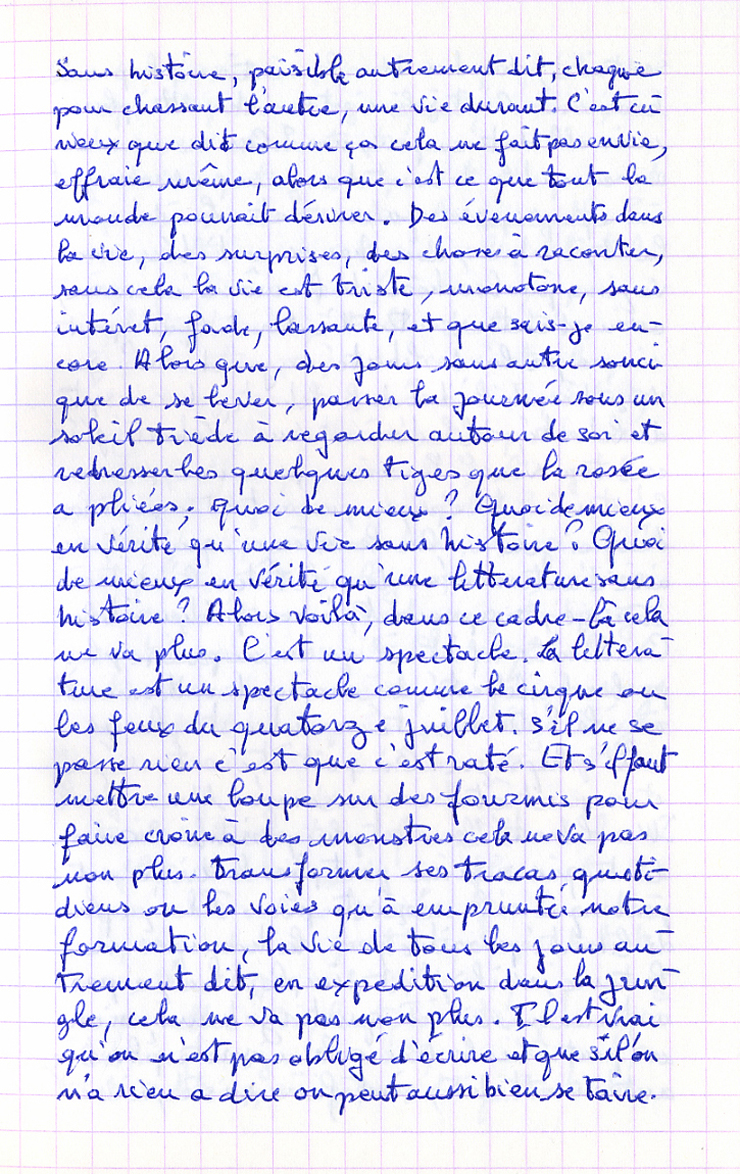 Sans histoire, paisible autrement dit, chaque
jour chassant l'autre, une vie durant. C'est cu
rieux que dit comme ça cela ne fait pas envie,
effraie même, alors que c'est ce que tout le
monde pourrait désirer. Des évenements dans
la vie, des surprises, des choses à raconter,
sans cela la vie est triste, monotone, sans
intéret, fade, lassante, et que sais-je en-
core. Alors que, des jours sans autre souci
que de se lever, passer la journée sous un
soleil tiède à regarder autour de soi et
redresser les quelques tiges que la rosée
a pliées, quoi de mieux ? Quoi de mieux
en vérité qu'une vie sans histoire ? Quoi
de mieux en vérité qu'une litterature sans
histoire ? Alors voilà, dans ce cadre-là cela
ne va plus. C'est un spectacle. La littera-
ture est un spectacle comme le cirque ou
les feux du quatorze juillet. S'il ne se
passe rien c'est que c'est raté. Et s'il faut
mettre une loupe sur des fourmis pour
faire croire à des monstres cela ne va pas
non plus. Transformer ses tracas quoti-
diens ou les voies qu'à empruntée notre
formation, la vie de tous les jours au-
trement dit, en expedition dans la jun-
gle, cela ne va pas non plus. Il est vrai
qu'on n'est pas obligé d'écrire et que si l'on
n'a rien a dire on peut aussi bien se taire.